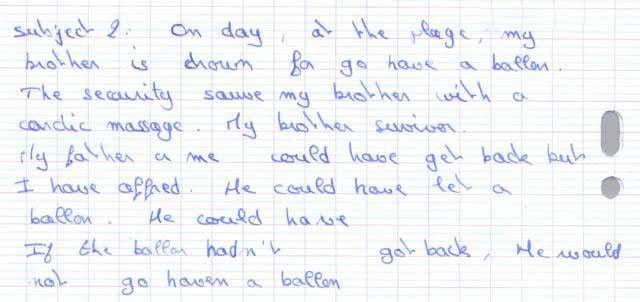 subject 2: On day, at the plage, my
brother is drown for go have a ballon.
The security sauve my brother with a
cardic massage. My brother survivor.
My father a me could have get back but
I have affred. He could have let a
ballon. He could have
If the ballon hadn't got back, He would
not go haven a ballon